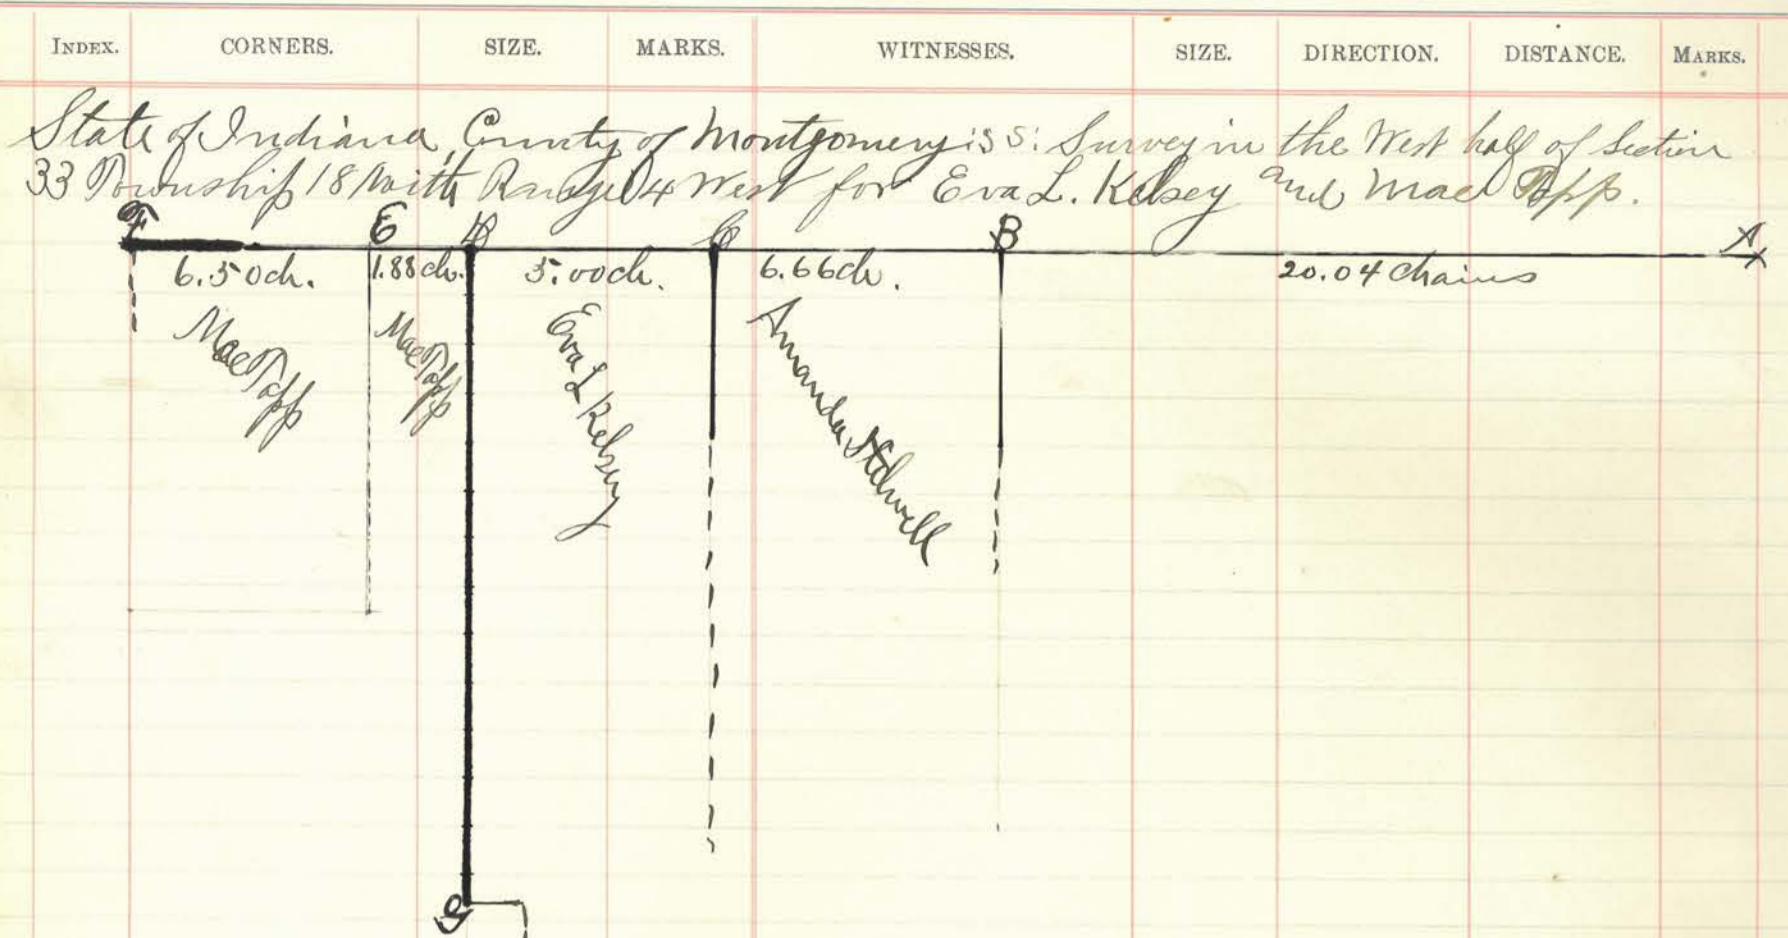 INDEX. CORNERS. SIZE. MARKS. WITNESSES. SIZE. DIRECTION. DISTANCE. MARKS.
State of Indiana, County of Montgomery: ss: Survey in the West half of Section
33 Township 18 North Range 4 West for Eva L. Kelsey and Mae Tapp.
F E D C B A
6.50ch. 1.88ch. 5.00ch. 6.66ch. 20.04 Chains
Mae Tapp
Mae Tapp
Eva L Kelsey
Amanda Stilwell
G